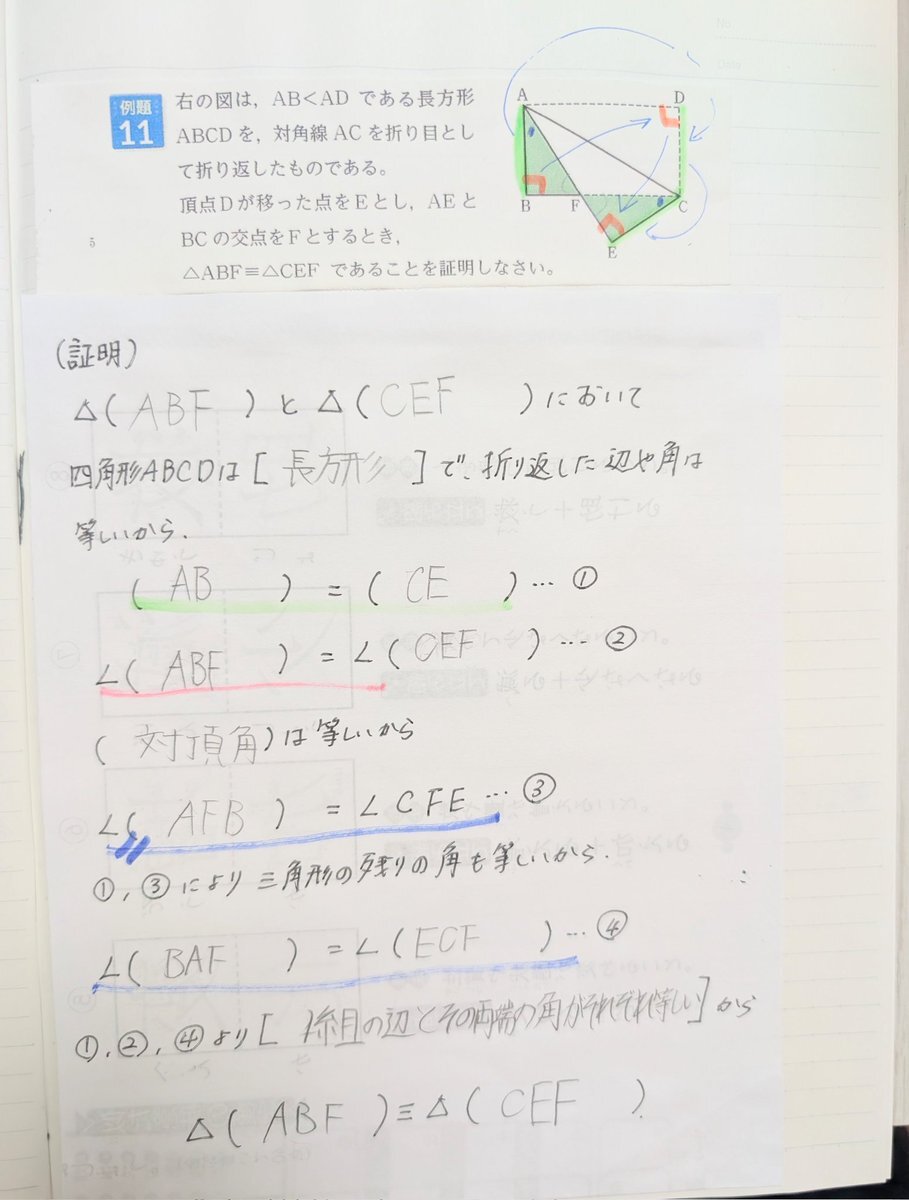 No.
Date
例題
11
右の図は，AB＜AD である長方形
ABCDを，対角線 AC を折り目とし
て折り返したものである。
頂点Dが移った点をEとし，AEと
BCの交点をFとするとき，
5
△ABF≡△CEF であることを証明しなさい。
A
D
B
F
C
E
(証明)
△( ABF )と△( CEF )において
四角形ABCDは[ 長方形 ]で、折り返した辺や角は
等しいから.
( AB ) = ( CE )… ①
∠( ABF ) = ∠( CEF )… ②
( 対頂角 )は等しいから
∠( AFB ) = ∠CFE… ③
①, ③により三角形の残りの角も等しいから.
∠( BAF ) = ∠( ECF )… ④
①, ②, ④より[ 1組の辺とその両端の角がそれぞれ等しい ]から
△( ABF )≡△( CEF )